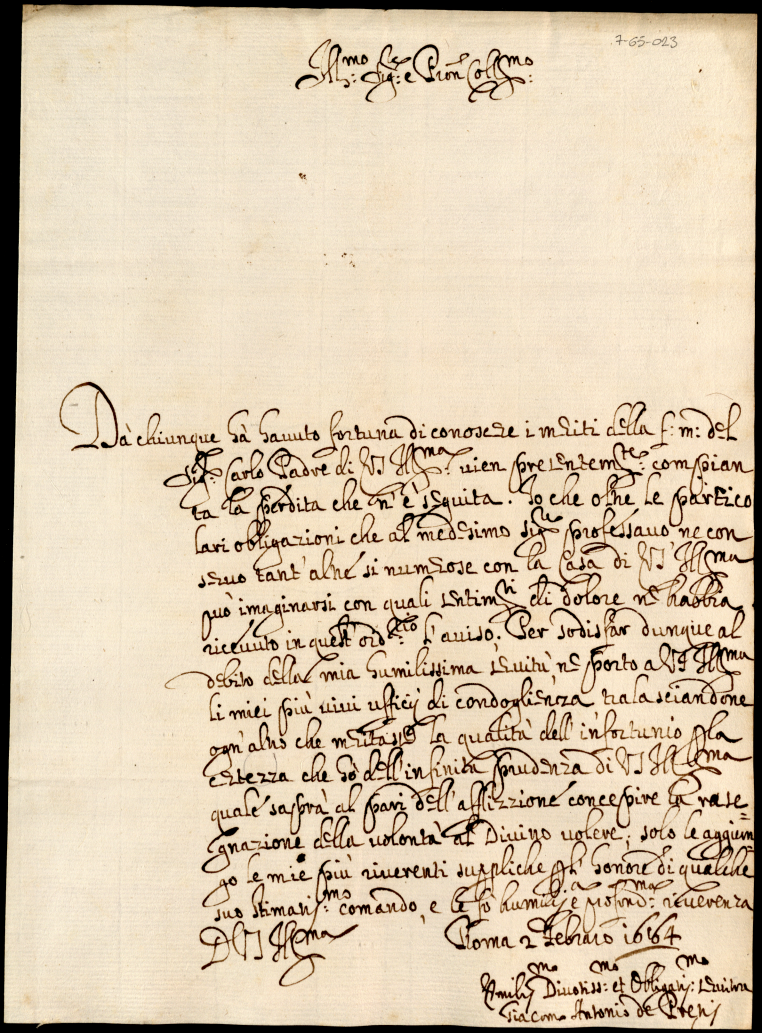 7-65-023
Ill.mo Sig.re e Pron Coll.mo
Dà chiunque hà hauuto fortuna di conoscere i meriti della f: m: del
Sig.r Carlo Padre di VS Ill.ma vien presentem.te compian
ta la perdita che n'è seguita. Io che oltre le partico
lari obligazioni che al medesimo sig.re professauo ne con
seruo tant'altre si numerose con la Casa di VS Ill.ma
può imaginarsi con quali sentim.ti di dolore ne habbia
riceuuto in quest'ord.rio l'auiso. Per sodisfar dunque al
debito della mia humilissima seruitù ne porto a VS Ill.ma
li miei più viui ufficij di condoglienza tralasciandone
ogn'altro che meritasse la qualità dell'infortunio p la
certezza che hò dell'infinita prudenza di VS Ill.ma
quale saprà al pari dell'afflizzione concepire la rasse
gnazione della volontà al Diuino volere; solo le aggiun
go le mie più riuerenti suppliche p l'honore di qualche
suo stimatis.mo comando, e le fò humilis.a e profond.ma riuerenza
D VS Ill.ma Roma 2 Febraio 1664
Humilis.mo Diuotiss.mo et Obligatis.mo seruitore
Giacomo Antonio de